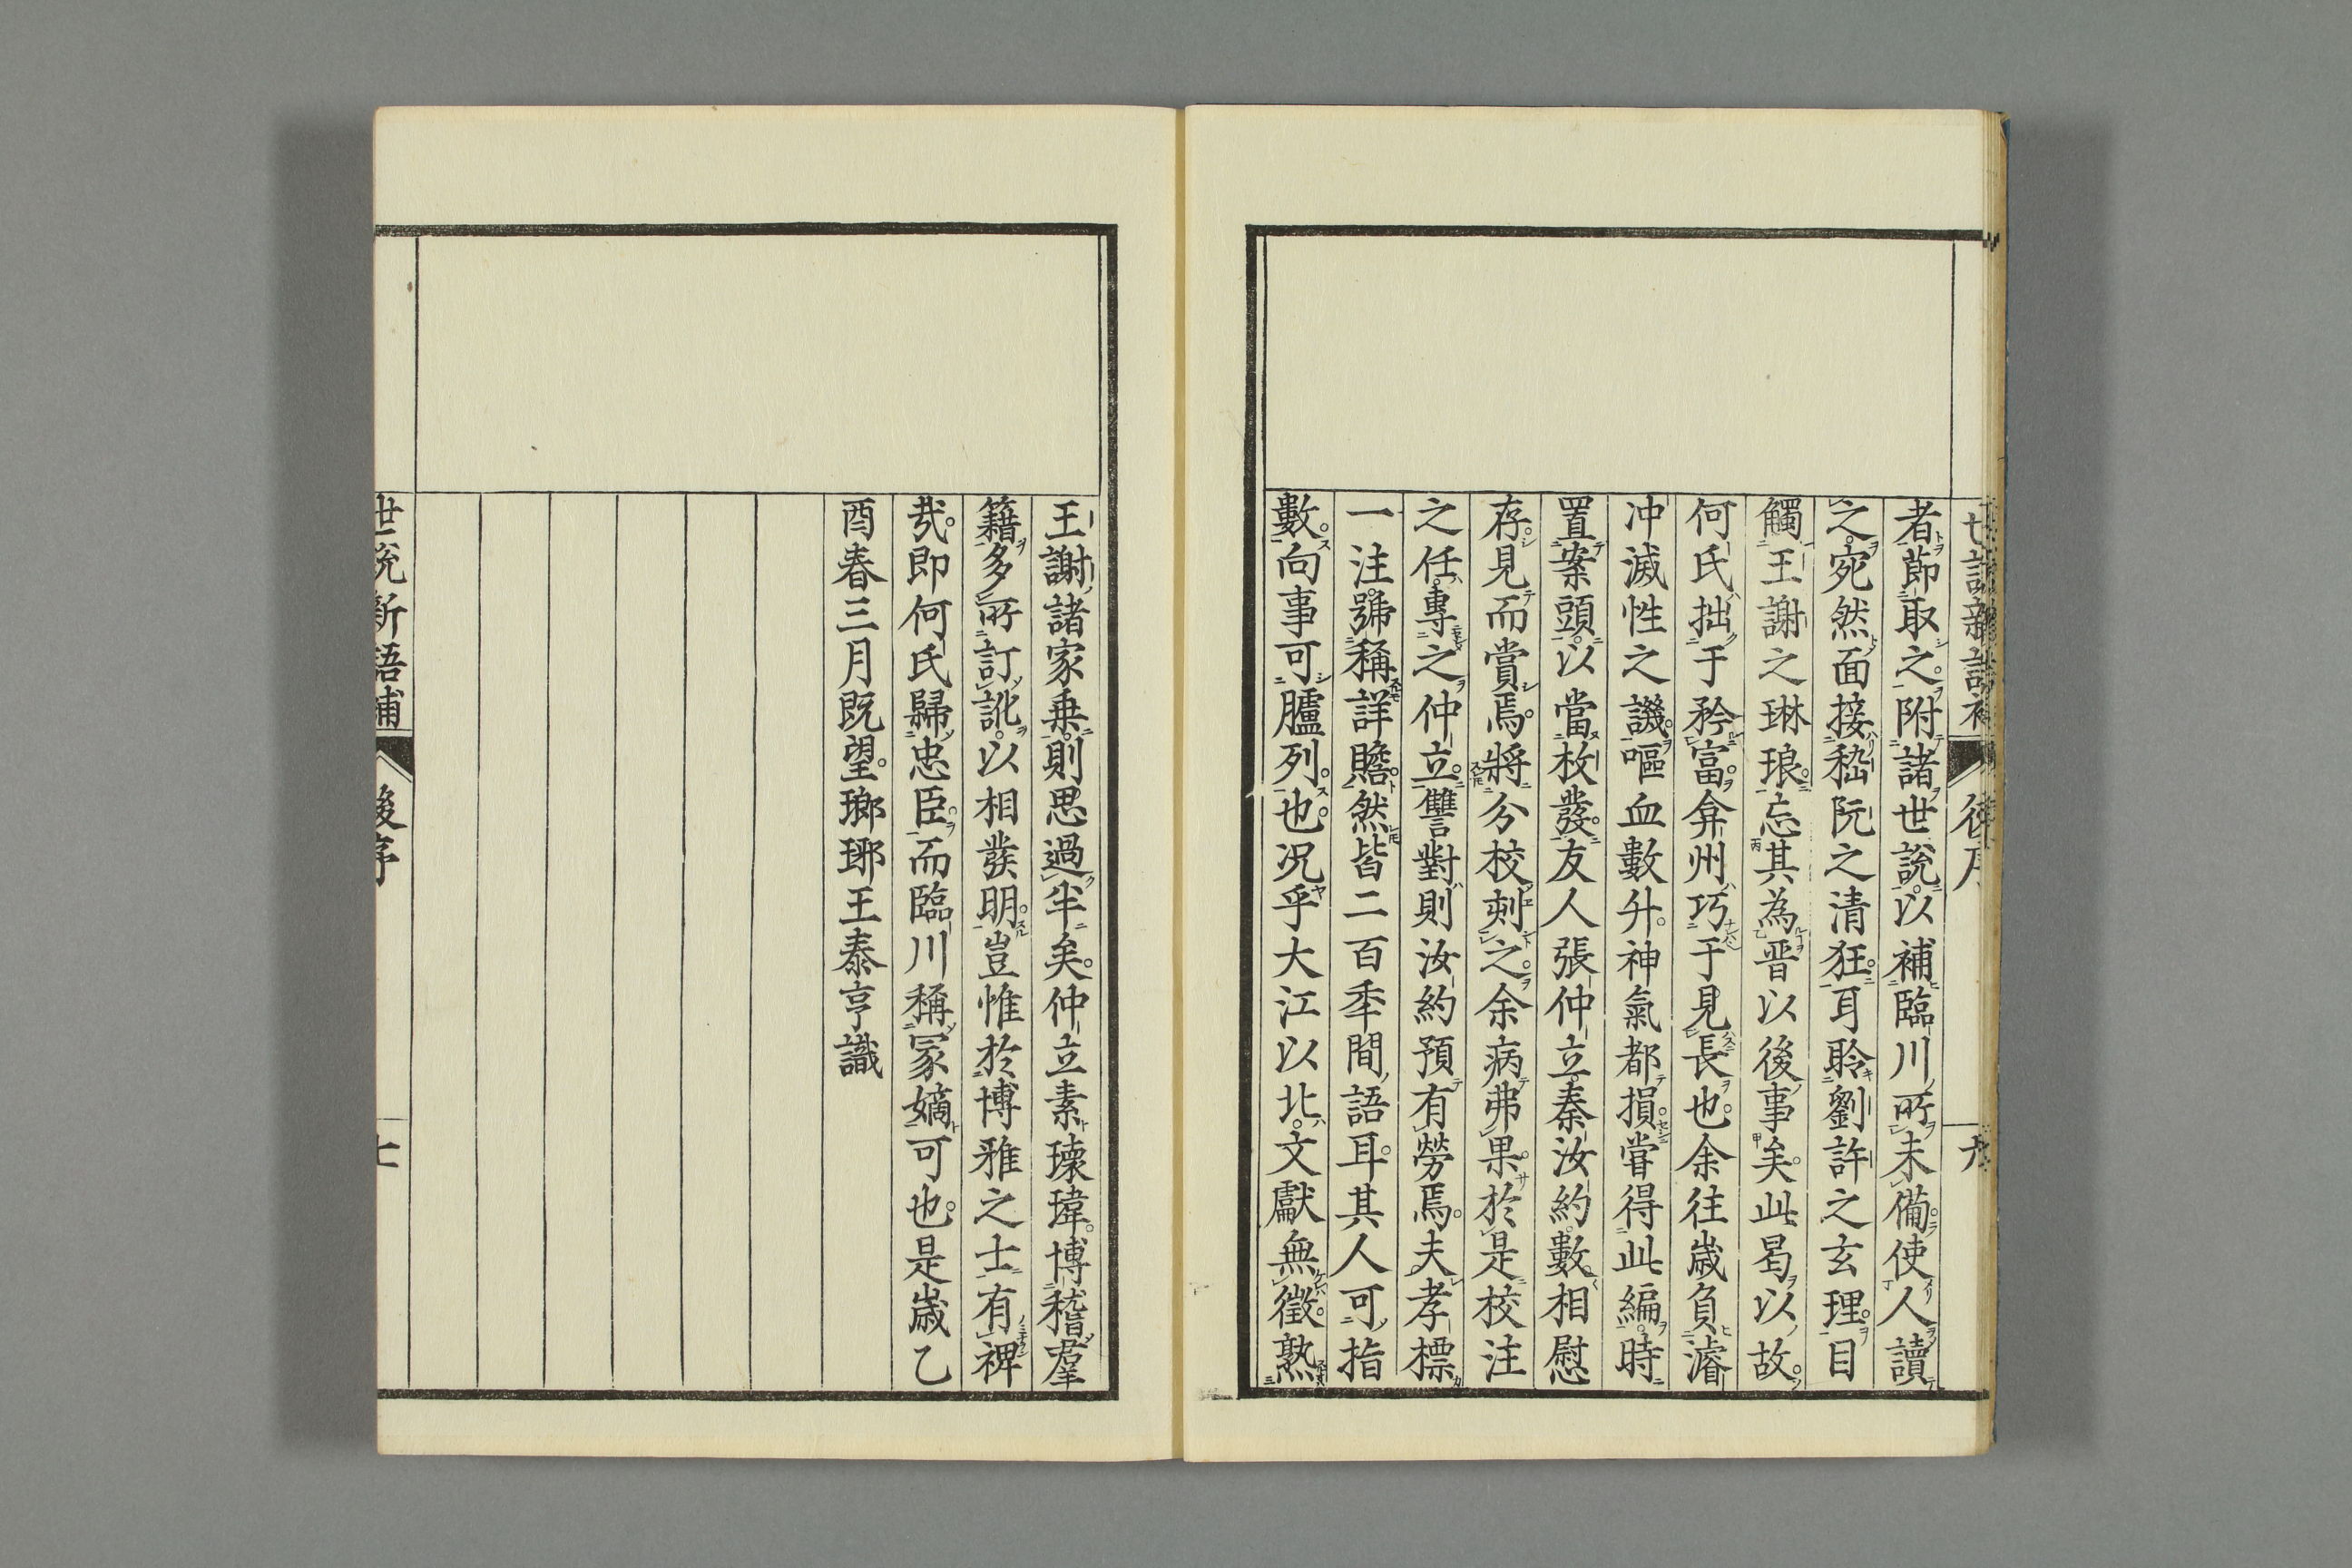 者節取之附諸世說以補臨川所未備使人讀
之宛然面接嵇阮之清狂耳聆劉許之玄理目
觸王謝之琳琅忘其為晋以後事矣此曷以故
何氏拙于矜富弇州巧于見長也余往歲負濬
冲滅性之譏嘔血數升神氣都損嘗得此編時
置案頭以當枚發友人張仲立秦汝約數相慰
存見而賞焉將分校刻之余病弗果於是校注
之任專之仲立讐對則汝約預有勞焉夫孝標
一注號稱詳贍然皆二百年間語耳其人可指
數向事可臚列也况乎大江以北文獻無徵熟
王謝諸家乗則思過半矣仲立素瓌瑋博稽羣
籍多所訂訛以相發明豈惟於博雅之士有裨
哉即何氏歸忠臣而臨川稱冡嫡可也是歲乙
酉春三月既望瑯琊王泰亨識
世說新語補 後序 七